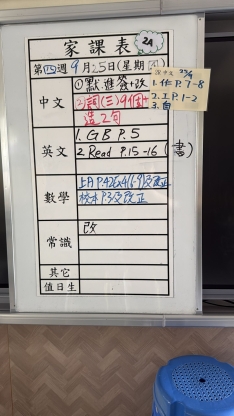 家課表
2A
第四週 9月25日(星期四)
中文
①默、進簽+改
②詞(三)9個+
造2句
23/9
1.作P.7-8
2.工P.1-2
3.自
英文
1. GB P.5
2. Read P.15-16 (書)
數學
上A P.42
及改正
校本P.3及改正
常識
改
其它
值日生